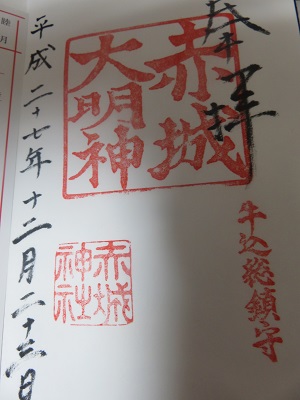 奉拝
赤城
大明神
牛込総鎮守
赤城
神社
平成二十七年十二月二十三日
睦月